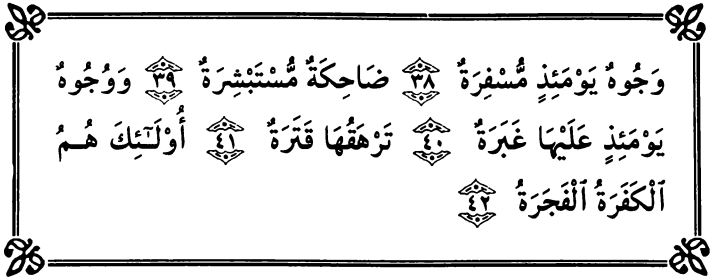 وُجُوهٌ يَوْمَئِذٍ مُّسْفِرَةٌ ٣٨ ضَاحِكَةٌ مُّسْتَبْشِرَةٌ ٣٩ وَوُجُوهٌ
يَوْمَئِذٍ عَلَيْهَا غَبَرَةٌ ٤٠ تَرْهَقُهَا قَتَرَةٌ ٤١ أُوْلَـٰٓئِكَ هُـمُ
ٱلْكَفَرَةُ ٱلْفَجَرَةُ ٤٢